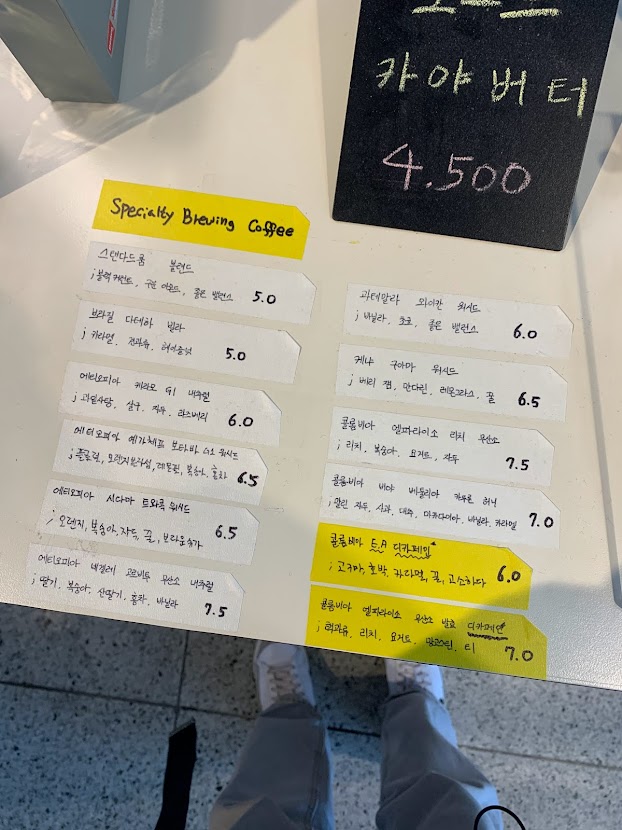 카야버터
4.500
Specialty Brewing Coffee
스탠다드룸 블렌드
; 블랙커런트, 구운 아몬드, 좋은 밸런스 5.0
브라질 다테하 빌라
; 카라멜, 견과류, 허니 5.0
에티오피아 케라모 G1 내추럴
; 과일사탕, 살구, 자두, 라즈베리 6.0
에티오피아 예가체프 보타바 G1 워시드
; 플로럴, 오렌지, 레몬, 복숭아, 홍차 6.5
에티오피아 시다마 토와록 워시드
; 오렌지, 복숭아, 자두, 꿀, 브라운슈가 6.5
에티오피아 벤사 무산소 내추럴
; 딸기, 복숭아, 산딸기, 홍차, 바닐라 7.5
과테말라 와이칸 워시드
; 바닐라, 초코, 좋은 밸런스 6.0
케냐 구아마 워시드
; 베리 잼, 만다린, 레몬그라스, 꿀 6.5
콜롬비아 엘파라이소 리치 무산소
; 리치, 복숭아, 요거트, 자두 7.5
콜롬비아 비야 베툴리아 허니
; 말린 자두, 사과, 대추, 마카다미아, 바닐라, 카라멜 7.0
콜롬비아 E.A 디카페인
; 고구마, 호박, 카라멜, 꿀, 고소하다 6.0
콜롬비아 엘파라이소 무산소 발효 디카페인
; 핵과류, 리치, 요거트, 망고스틴, 티 7.0